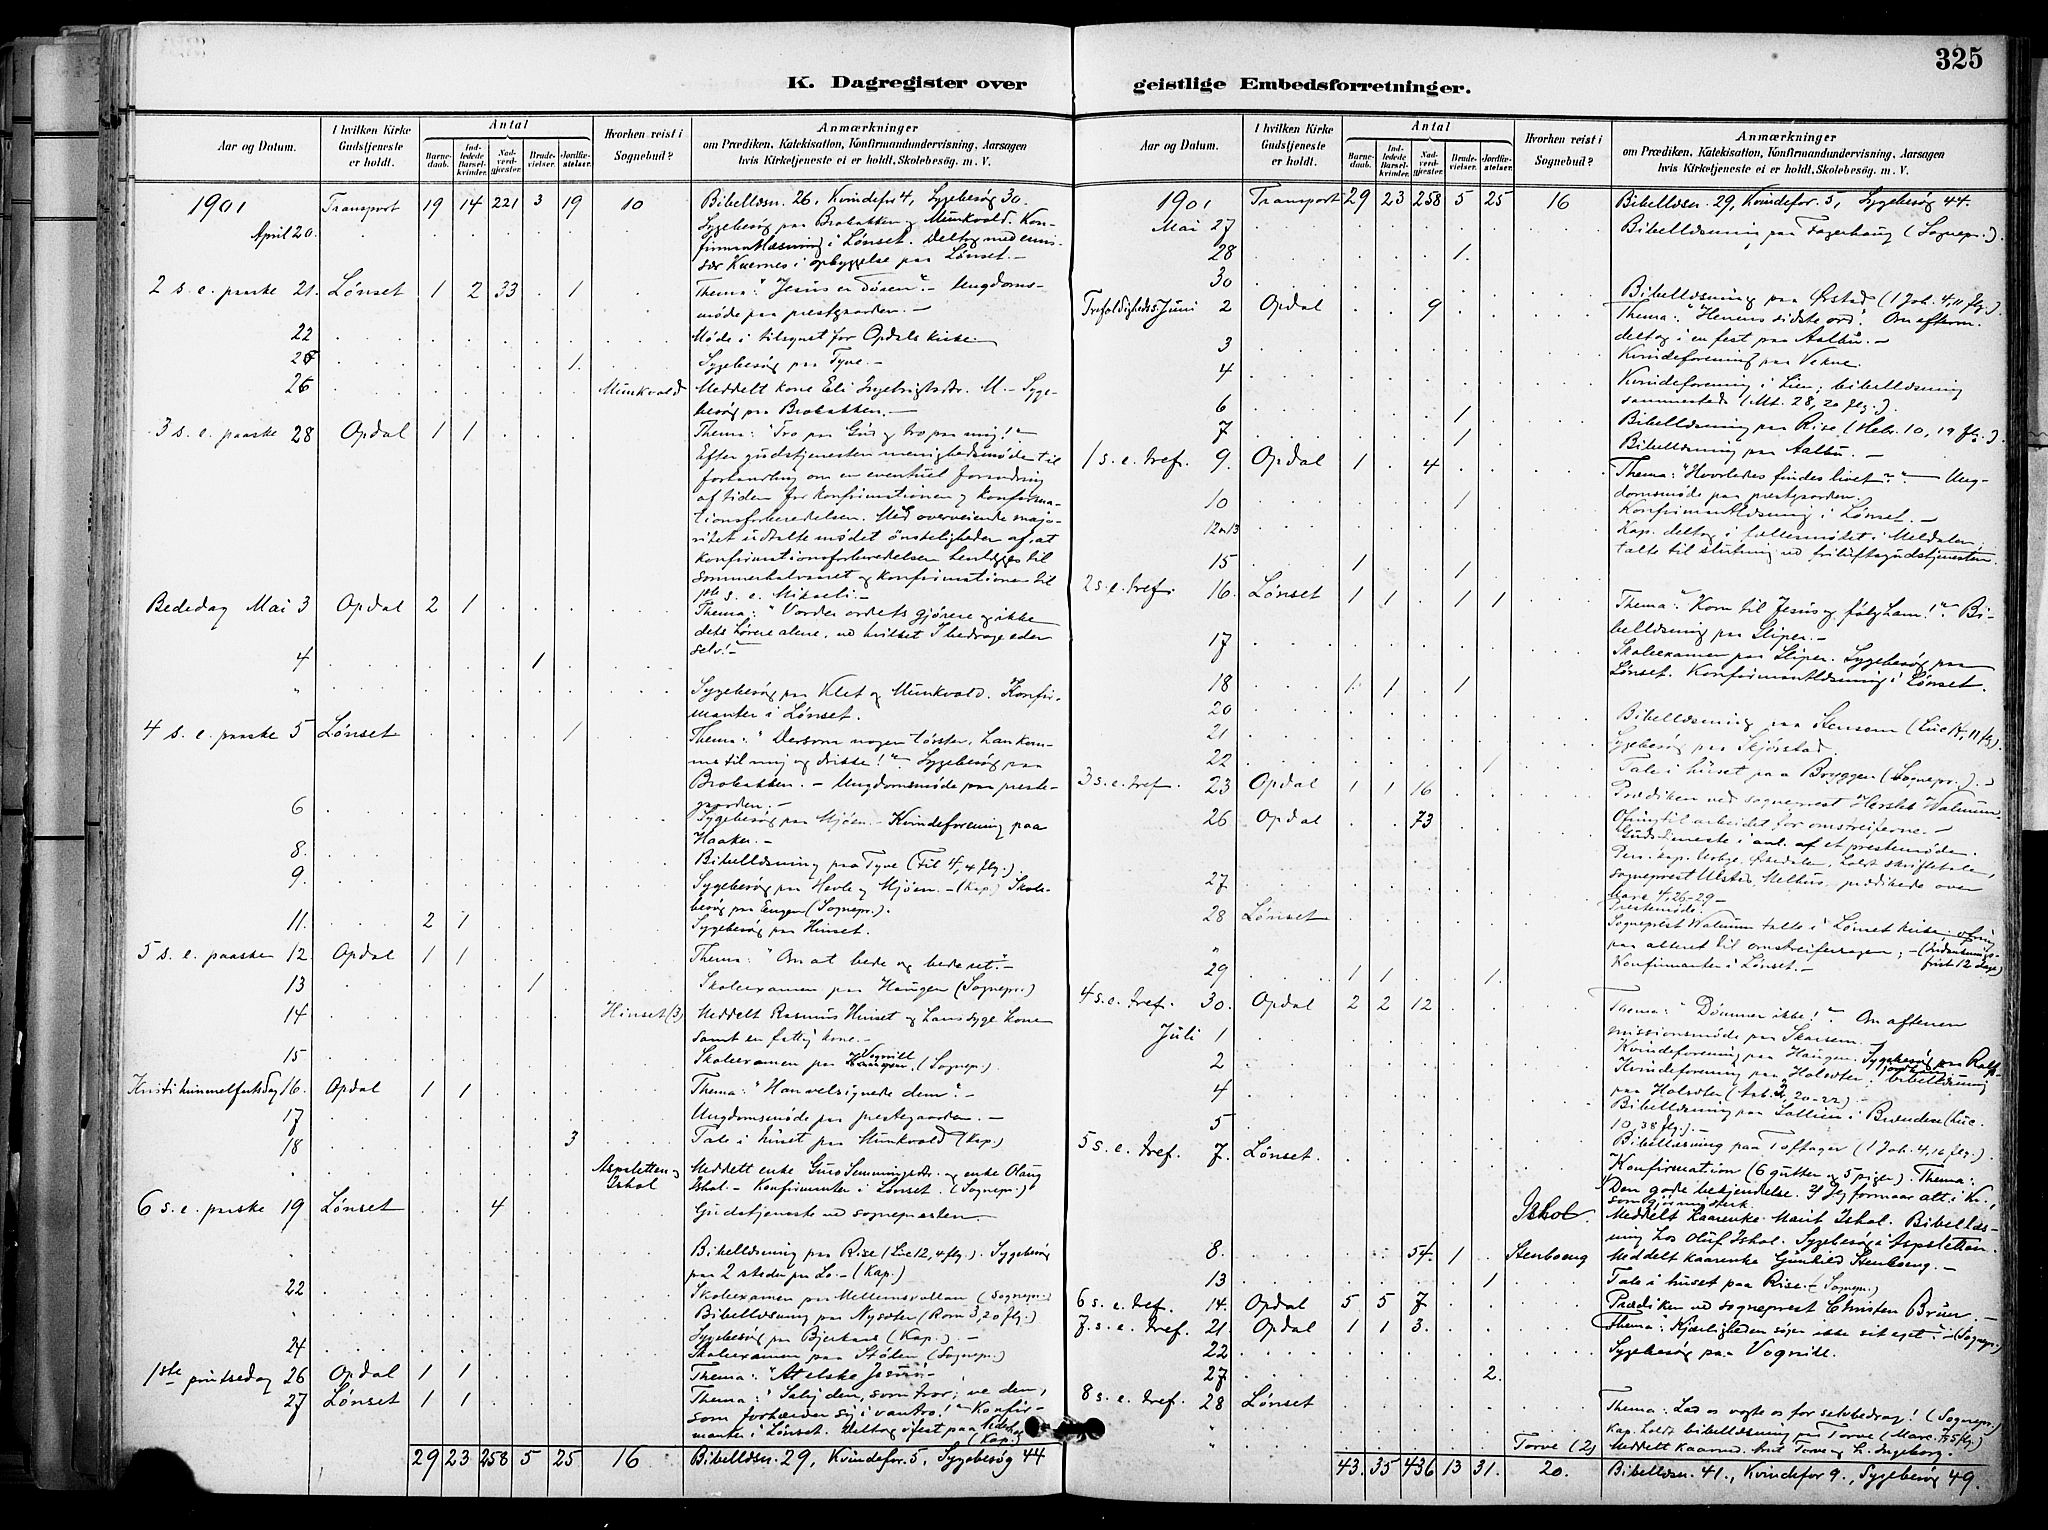 325
K. Dagregister over geistlige Embedsforretninger.
Aar og Datum.
I hvilken Kirke Gudstjeneste er holdt.
Antal
Barnedaab.
Indledede Barselkvinder.
Nadverdgjæster.
Brudevielser.
Jordfæstelser.
Hvorhen reist i Sognebud?
Anmærkninger
om Prædiken, Katekisation, Konfirmandundervisning, Aarsagen
hvis Kirketjeneste ei er holdt, Skolebesøg. m. V.
1901 Transport 19 14 221 3 19 10 Bibellæsn. 26, Kvindefor 4, Sygebesøg 30.
April 20. Sygebesøg paa Brobakken og Munkvold. Kon-
firmantlæsning i Lønset. Deltog med emis-
sær Kvernes i opbyggelse paa Lønset.-
2 s. e. paaske 21. Lønset 1 2 33 . 1 Thema: "Jesus er Døren". - Ungdoms-
møde paa prestgaarden.-
22 Møde i tilsynet for Opdals kirke.
1. Sygebesøg paa Tyve.-
26 Munkvold Meddelt kone Eli Ingebrigtsdr. M. - Syge-
besøg paa Brobakken.-
3 s. e. paaske 28 Opdal 1 1 Thema: "Tro paa Gud og tro paa mig!"
Efter gudstjenesten menighedsmøde til
forhandling om en eventuel forandring
af tiden for konfirmationen og konfirma-
tionsforberedelsen. Med overveiende majo-
ritet udtalte mødet ønskeligheden af, at
konfirmationsforberedelsen henlægges til
sommerhalvaaret og konfirmationen til
s. e. Mikaeli.-
Bededag Mai 3 Opdal 2 1 Thema: "Vorder ordets gjørere og ikke
dets hørere alene, ved hvilket I bedrage eder
selv."-
4 1
" Sygebesøg paa Klet og Munkvold. Konfir-
manter i Lønset.
4 s. e. paaske 5 Lønset 1 Thema: "Dersom nogen tørster, han kom-
me til mig og drikke!" Sygebesøg paa
Brobakken. - Ungdomsmøde paa preste-
gaarden.-
6 Sygebesøg paa Mjøen.- Kvindeforening paa
Haaker.-
8. Bibellæsning paa Tyve (Fil 4, 4 flg.).
9. Sygebesøg paa Hevle og Mjøen.-(Kap.) Skole-
besøg paa Engen (Sognepr.).
11. 2 1 Sygebesøg paa Hinset.
5 s. e. paaske 12. Opdal 1 1 Thema: "Om at bede og bede ret."-
13 1 Skoleexamen paa Haugen (Sognepr.)
14 Hinset (3) Meddelt Rasmus Hinset og hans syge kone
samt en fattig kone.-
15 Skoleexamen paa Vognill. (Sognepr.).
Kristi himmelfartsdag 16. Opdal 1 1 Thema: "Han velsignede dem".-
17 Ungdomsmøde paa prestegaarden.-
18 3 Tale i huset paa Munkvold (Kap.)
Aspsletten og Ishol Meddelt enke Guro Semmingsdr. og enke Olaug
Ishol.- Konfirmanter i Lønset. (Sognepr.)
6 s. e. paaske 19 Lønset 4 Gudstjeneste ved sognepresten.
Bibellæsning paa Rise (Luc 12, 4 flg.). Sygebesøg
paa 2 steder paa Lo.-(Kap.)
22 Skoleexamen paa Mellemsvollan (Sognepr.)
Bibellæsning paa Nysæter (Rom 3, 20 flg.)
Sygebesøg paa Bjerkaas (Kap.).-
24 Skoleexamen paa Stølen (Sognepr.)
1ste pintsedag 26 Opdal 1 1 Thema: "At elske Jesus.-
27 Lønset 1 1 Thema: "Salig den, som tror; ve den,
som forhærder sig i vantro!" Konfir-
manter i Lønset. Deltog i fest paa
(Kap.)
29 23 258 5 25 16 Bibellæsn. 29, Kvindefor. 5, Sygebesøg 44
Aar og Datum.
I hvilken Kirke Gudstjeneste er holdt.
Antal
Barnedaab.
Indledede Barselkvinder.
Nadverdgjæster.
Brudevielser.
Jordfæstelser.
Hvorhen reist i Sognebud?
Anmærkninger
om Prædiken, Katekisation, Konfirmandundervisning, Aarsagen
hvis Kirketjeneste ei er holdt, Skolebesøg. m. V.
1901 Transport 29 23 258 5 25 16 Bibellæsn. 29, Kvindefor. 5, Sygebesøg 44.
Mai 27 Bibellæsning paa Fagerhaug (Sognepr.).
28 1.
30 Bibellæsning paa Ørstad (1 Joh. 4, 11 flg.).
Trefoldigheds. Juni 2 Opdal 9 Thema: "Herrens sidste ord". Om efterm.
deltog i en fest paa Aalbu.-
3 Kvindeforening paa Vekve.
4 Kvindeforening i Lien; bibellæsning
sammesteds (Mt. 28, 20 flg.).
6 1 Bibellæsning paa Rise (Hebr. 10, 19 flg.).
7 1 Bibellæsning paa Aalbu.-
1 s. e. tref. 9. Opdal 1 4 Thema: "Hvorledes findes livet?"- Ung-
domsmøde paa prestgaarden.
10 1 Konfirmantlæsning i Lønset.-
12 og 13 Kap. deltog i fællesmødet i Meldalen;
talte til slutning ved friluftsgudstjenesten.
15 1 1
2 s. e. tref. 16. Lønset 1 1 1 1 Thema: "Kom til Jesus og følg ham!". Bi-
bellæsning paa Sliper.-
17 Skoleexamen paa Sliper. Sygebesøg paa
Lønset. Konfirmantlæsning i Lønset.
18 1 1 1
20 Bibellæsning paa Stensem (Luc 14, 11 flg.).
21 Sygebesøg paa Skjørstad.
22 1 Tale i huset paa Bryggen (Sognepr.).-
3 s. e. tref. 23 Opdal 1 1 16 Prædiken ved sogneprest Hersleb Walnum.
Ofring til arbeidet for omstreiferne.-
26 Opdal 73 Gudstjeneste i anl. af et prestemøde.
Pers. kap. holdt skriftetale,
sogneprest Ulstad, Melhus, prædikede over
Marc 4, 26-29-
27 Prestemøde.
28 Lønset Sogneprest Walnum talte i Lønset kirke. ofring
paa alteret til omstreifersagen;
"
29 1 1 1. Konfirmanter i Lønset.-
4 s. e. tref. 30. Opdal 2 2 12 Thema: "Dømmer ikke!". Om aftenen
missionsmøde paa Skorem.-
Juli 1 Kvindeforening paa Haugen. Sygebesøg paa
2 Kvindeforening paa Holsæter. bibellæsning
paa Holsæter (Aab. 3, 20-22).-
4 Bibellæsning paa Sollien i (Luc.
10, 38 flg.).-
5 Bibellæsning paa Toftager (1 Joh. 4, 16 flg.).
5 s. e. tref. 7. Lønset. Konfirmation (6 gutter og 5 piger). Thema:
Den gode bekjendelse. Jeg formaar alt i Kr.,
som gjør mig stærk.
Ishol. Meddelt kaarenke Marit Ishol. Bibellæs-
ning hos Oluf Ishol. Sygebesøg i Aspsletten.
8. 54. 1 Stenboeng Meddelt kaarenke Gunhild Stenboeng.-
13 1 Tale i huset paa Rise.-(Sognepr.)
6 s. e. tref. 14. Opdal 5 5 7 Prædiken ved sogneprest Christen Brun.-
7. s. e. tref. 21. Opdal 1 1 3. Thema: "Kjærligheden søger ikke sit eget".-(Sognepr.)
22 Sygebesøg paa Vognill.
27 2.
8 s. e. tref. 28 Lønset Thema: Lad os vogte os for selvbedrag! (Sognepr.)
" Kap. holdt bibellæsning paa Torve (Marc. flg.)
" Torve (2) Meddelt Kaarmd. Torve og h. Ingeborg.
43. 35 436 13 31. 20. Bibellæsn. 41., Kvindefor 9., Sygebesøg 49.